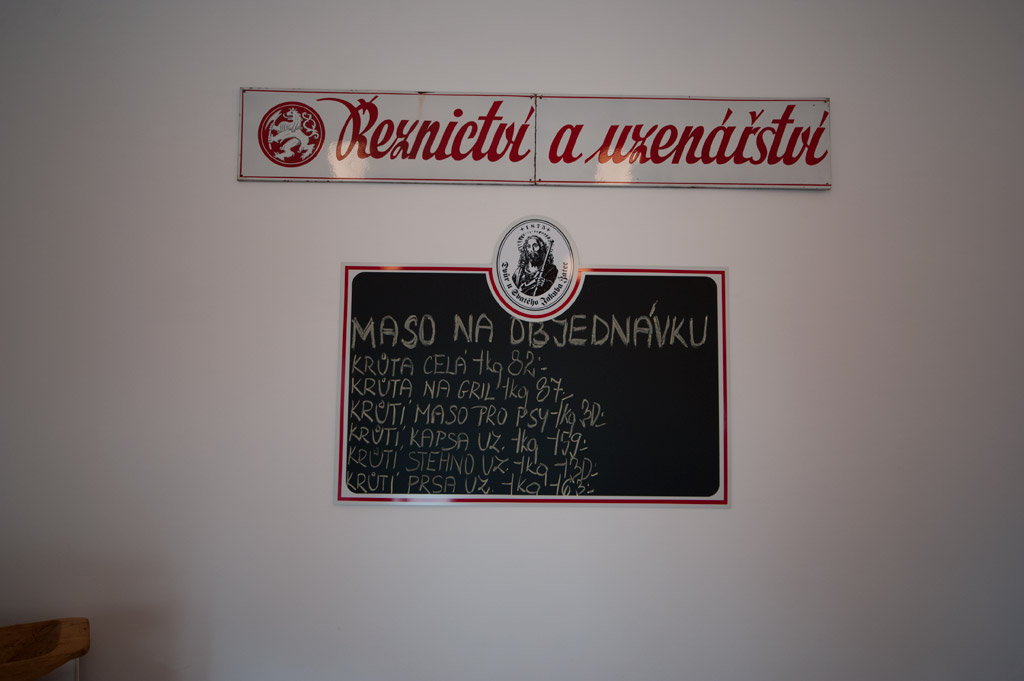 Řeznictví a uzenářství
1675
Dvůr u Svatého Jakuba Žatec
MASO NA OBJEDNÁVKU
KRŮTA CELÁ 1kg 82:-
KRŮTA NA GRIL 1kg 87,-
KRŮTÍ MASO PRO PSY 1kg 30:-
KRŮTÍ KAPSA UZ. 1kg 159:-
KRŮTÍ STEHNO UZ. 1kg 130:-
KRŮTÍ PRSA UZ. 1kg 163:-